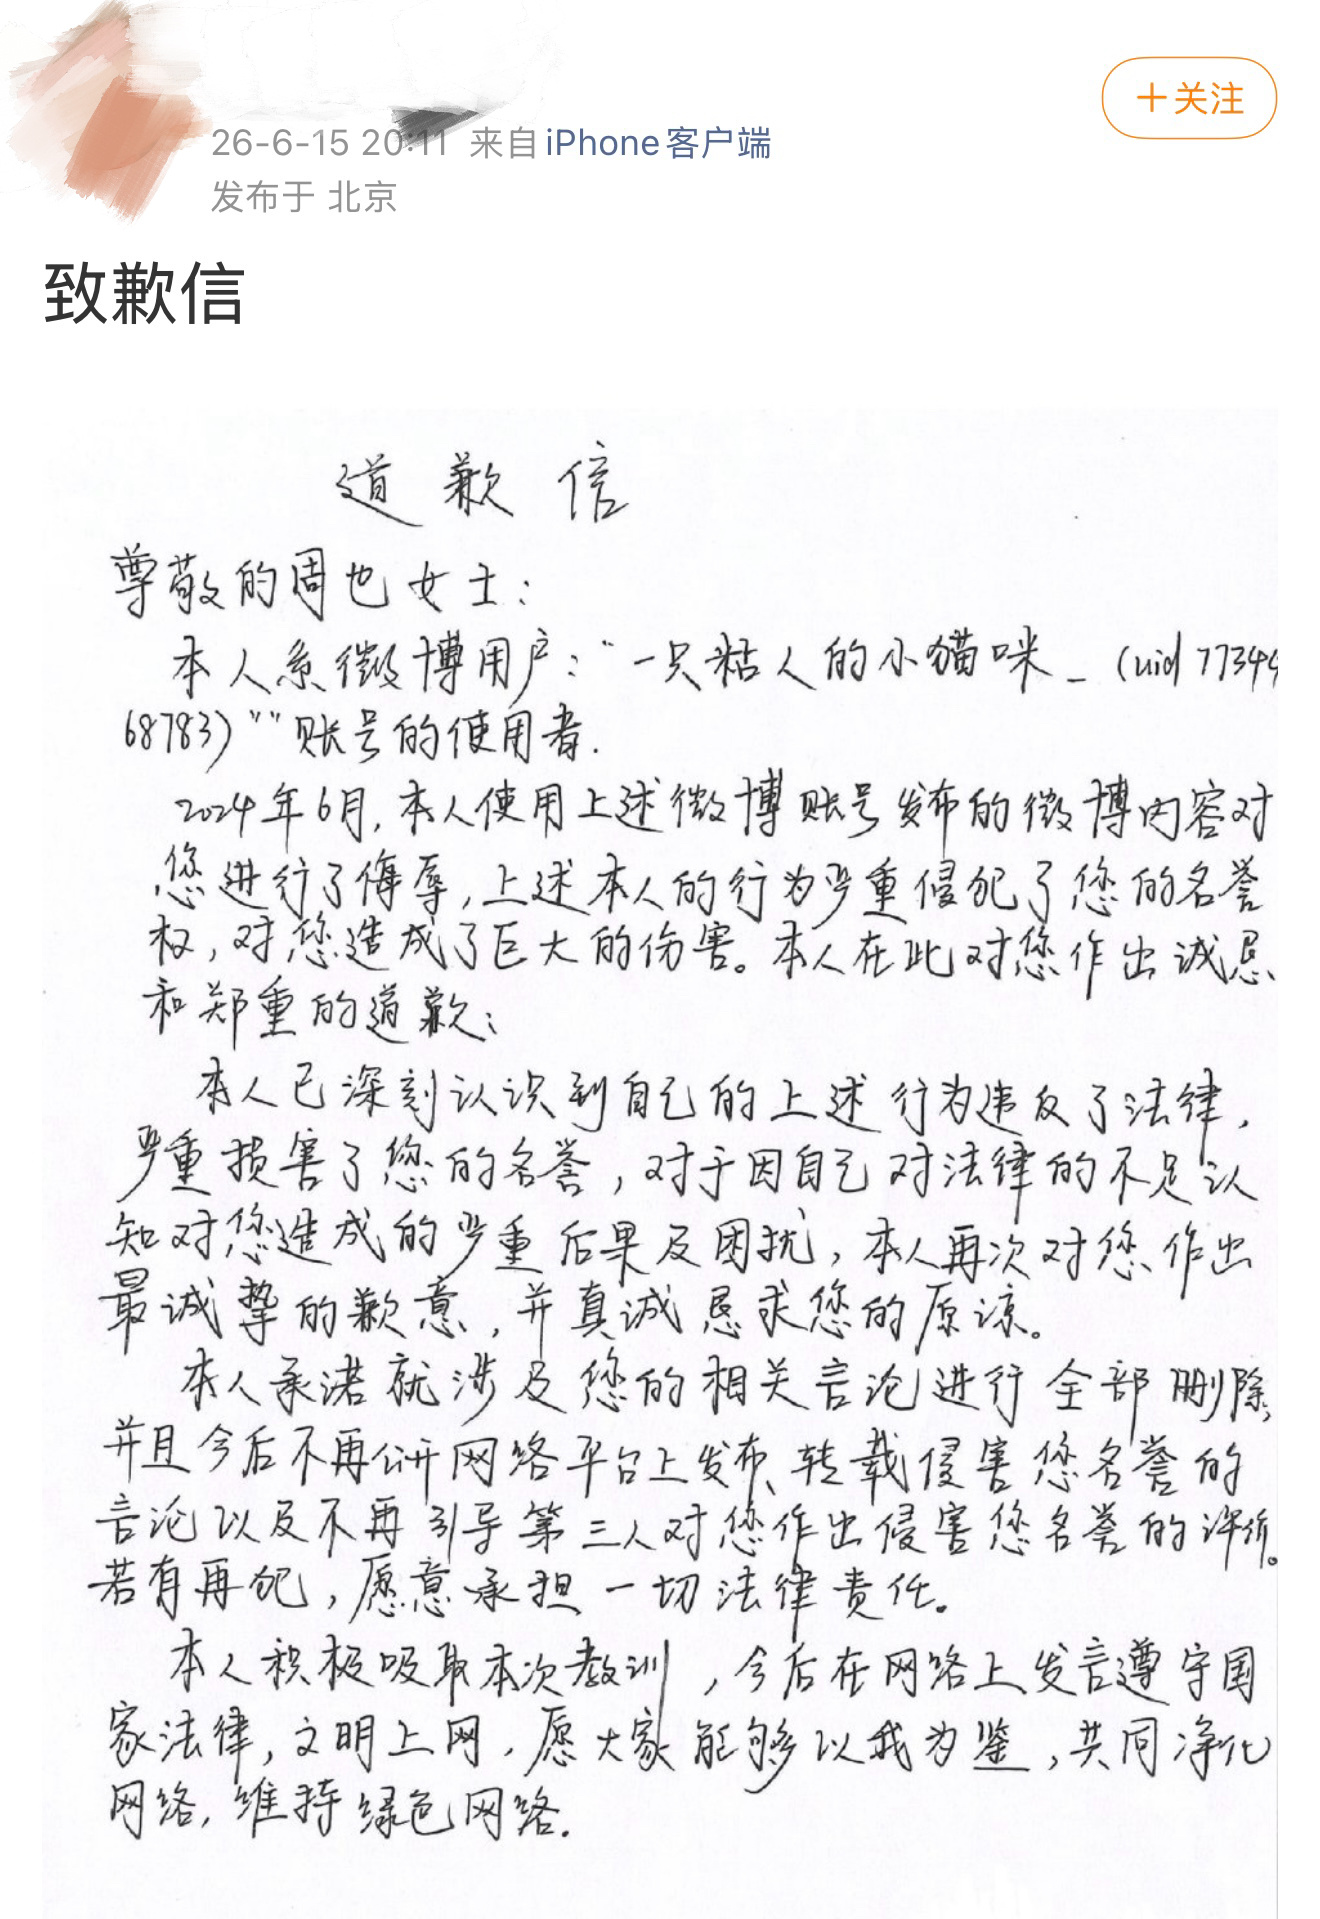 +关注
26-6-15 20:11 来自 iPhone客户端
发布于 北京
致歉信
道歉信
尊敬的周也女士：
本人系微博用户：“一只粘人的小猫咪_（uid 77344
68783）”“账号的使用者.
2024年6月,本人使用上述微博账号发布的微博内容对
您进行了侮辱,上述本人的行为严重侵犯了您的名誉
权,对您造成了巨大的伤害。本人在此对您作出诚恳
和郑重的道歉：
本人已深刻认识到自己的上述行为违反了法律,
严重损害了您的名誉,对于因自己对法律的不足认
知对您造成的严重后果及困扰,本人再次对您作出
最诚挚的歉意,并真诚恳求您的原谅。
本人承诺就涉及您的相关言论进行全部删除,
并且今后不再公开网络平台上发布、转载侵害您名誉的
言论以及不再引导第三人对您作出侵害您名誉的评价。
若有再犯,愿意承担一切法律责任。
本人积极吸取本次教训,今后在网络上发言遵守国
家法律,文明上网.愿大家能够以我为鉴,共同净化
网络,维持绿色网络.